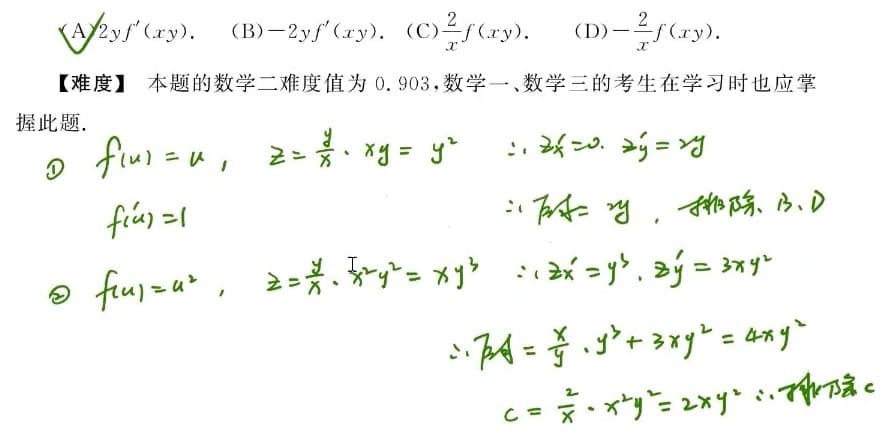 (A)2yf′(xy). (B)−2yf′(xy). (C)2/x f(xy). (D)−2/x f(xy).
【难度】 本题的数学二难度值为 0.903,数学一、数学三的考生在学习时也应掌
握此题.
① f(u) = u , z = y/x · xy = y² ∴ zx′=0. zy′=2y
f′(u) = 1 ∴ 原式= 2y , 排除、B、D
② f(u)=u² , z = y/x · x²y² = xy³ ∴ zx′ = y³ . zy′ = 3xy²
∴ 原式 = x/y · y³ + 3xy² = 4xy²
C = 2/x · x²y² = 2xy² ∴ 排除 C